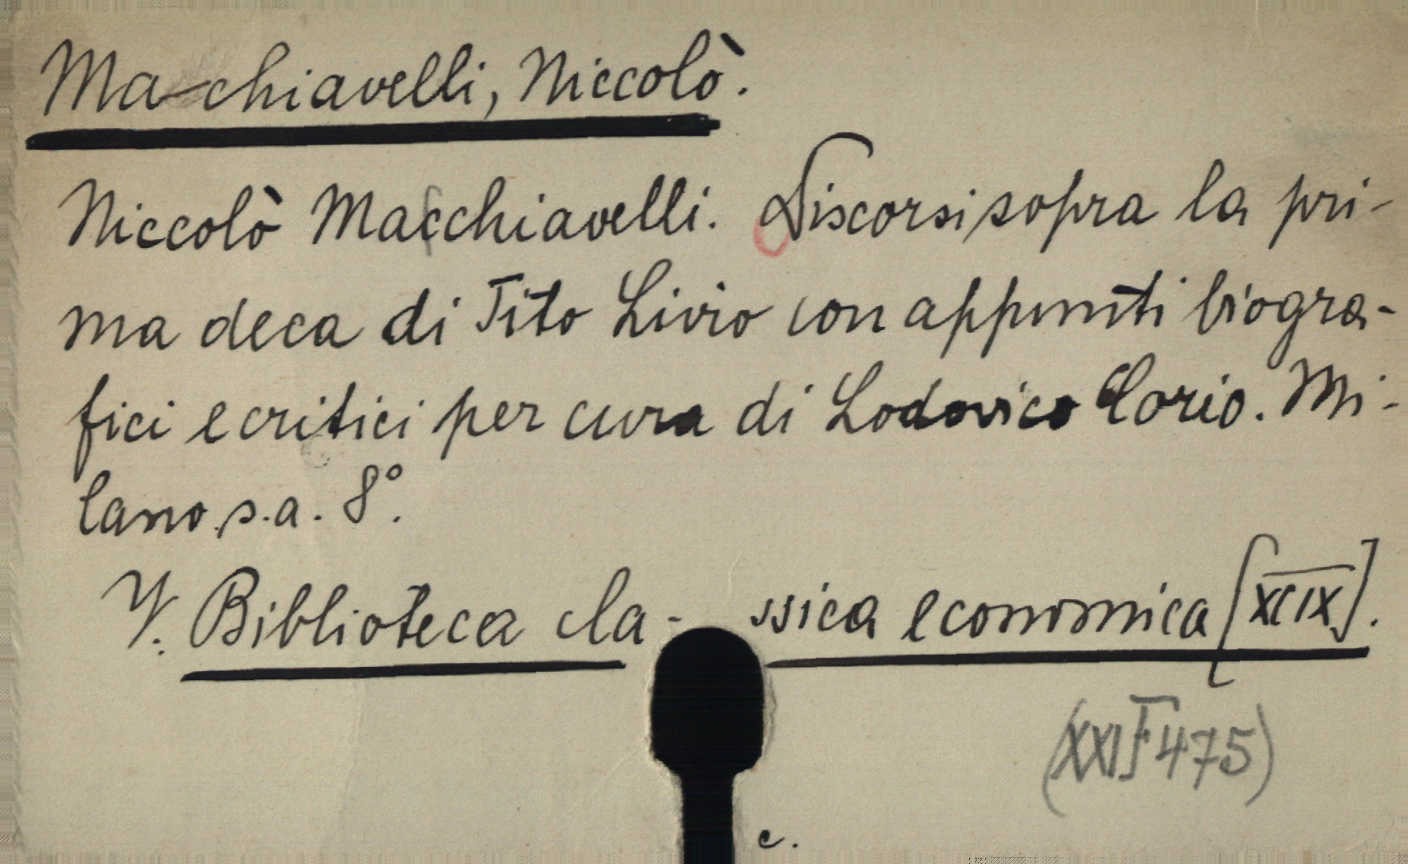 Machiavelli, Niccolò.
Niccolò Macchiavelli. Discorsi sopra la pri-
ma deca di Tito Livio con appunti biogra-
fici e critici per cura di Lodovico Corio. Mi-
lano s.a. 8°.
V. Biblioteca cla- ssica economica [XCIX].
(XXI F 475)
c.